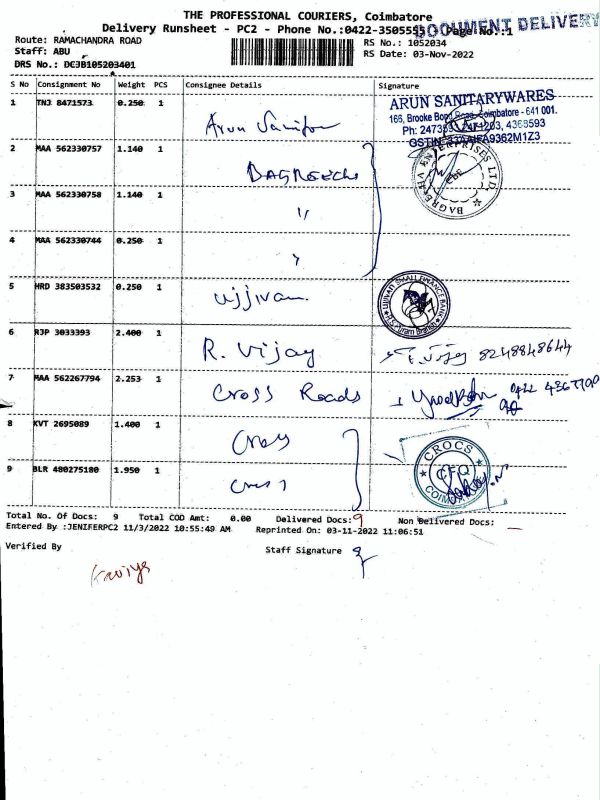 THE PROFESSIONAL COURIERS, Coimbatore
Delivery Runsheet - PC2 - Phone No.:0422-3505555 Page No.:1
DOCUMENT DELIVERY
Route: RAMACHANDRA ROAD
RS No.: 1052034
Staff: ABU
RS Date: 03-Nov-2022
DRS No.: DC3B105203401
S No Consignment No Weight PCS Consignee Details Signature
1 TNJ 8471573 0.250 1 Arun
ARUN SANITARYWARES
166, Brooke Bond Road, Coimbatore - 641 001.
2 MAA 562330757 1.140 1
3 MAA 562330758 1.140 1 "
4 MAA 562330744 0.250 1 "
5 HRD 383503532 0.250 1 Ujjivan
UJJIVAN SMALL FINANCE BANK
6 RJP 3033393 2.400 1 R. Vijay 8248848644
7 MAA 562267794 2.253 1 Cross Roads
8 KVT 2695089 1.400 1
CROCS
9 BLR 480275180 1.950 1
Total No. Of Docs: 9 Total COD Amt: 0.00 Delivered Docs: 9 Non Delivered Docs: -
Entered By :JENIFERPC2 11/3/2022 10:55:49 AM Reprinted On: 03-11-2022 11:06:51
Verified By Staff Signature
Kaviya